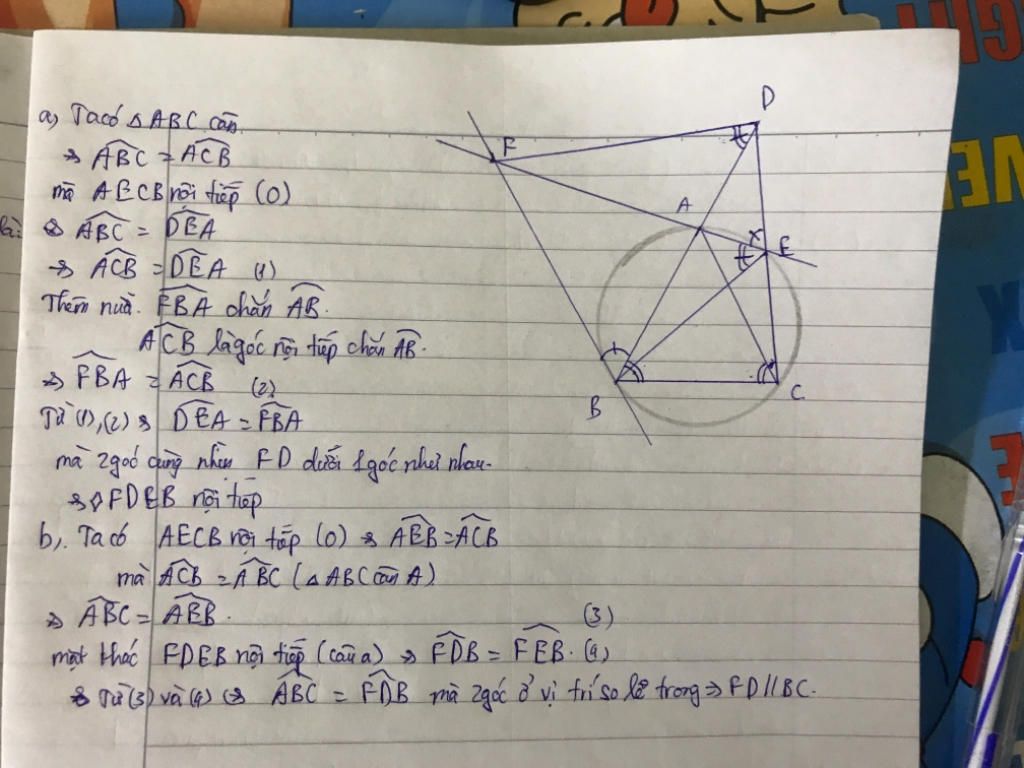 a, Ta có △ABC cân
⇒ \widehat{ABC} = \widehat{ACB}
mà AECB nội tiếp (O)
⇒ \widehat{ABC} = \widehat{DEA}
⇒ \widehat{ACB} = \widehat{DEA} (1)
Thêm nữa. \widehat{FBA} chắn \widehat{AB}.
\widehat{ACB} là góc nội tiếp chắn \widehat{AB}.
⇒ \widehat{FBA} = \widehat{ACB} (2)
Từ (1), (2) ⇒ \widehat{DEA} = \widehat{FBA}
mà 2 góc cùng nhìn FD dưới 1 góc như nhau.
⇒ ◊FDEB nội tiếp
b,. Ta có AECB nội tiếp (O) ⇒ \widehat{AEB} = \widehat{ACB}
mà \widehat{ACB} = \widehat{ABC} (△ABC cân A)
⇒ \widehat{ABC} = \widehat{AEB}. (3)
mặt khác FDEB nội tiếp (câu a) ⇒ \widehat{FDB} = \widehat{FEB}. (4)
⇒ Từ (3) và (4) ⇒ \widehat{ABC} = \widehat{FDB} mà 2 góc ở vị trí so lê trong ⇒ FD // BC.
D
F
A
x
E
B
C